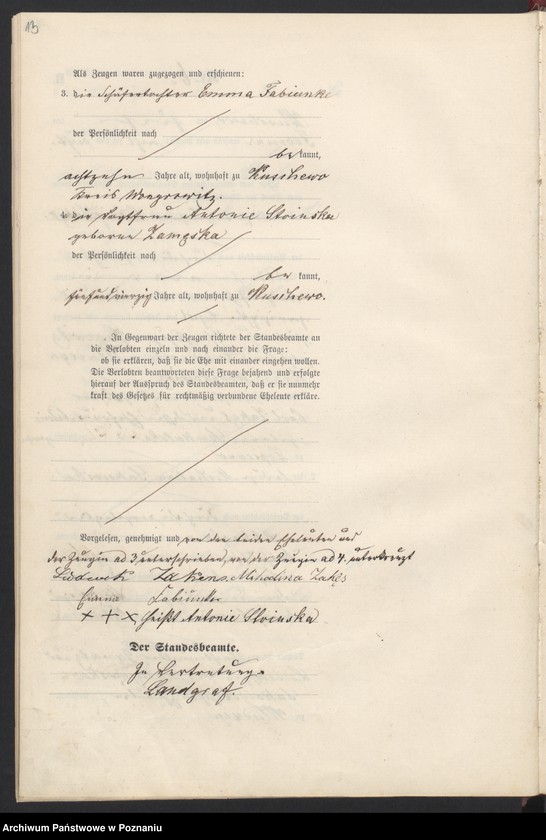 13
Als Zeugen waren zugezogen und erschienen:
3. die Schäfertochter Emma Fabiunke
der Persönlichkeit nach
bekannt,
achtzehn Jahre alt, wohnhaft zu Ruschewo
Kreis Wongrowitz.
4. die Vogtfrau Antonie Stoinska
geborene
der Persönlichkeit nach
bekannt,
fünfundvierzig Jahre alt, wohnhaft zu Ruschewo.
In Gegenwart der Zeugen richtete der Standesbeamte an
die Verlobten einzeln und nach einander die Frage:
ob sie erklären, daß sie die Ehe mit einander eingehen wollen.
Die Verlobten beantworteten diese Frage bejahend und erfolgte
hierauf der Ausspruch des Standesbeamten, daß er sie nunmehr
kraft des Gesetzes für rechtmäßig verbundene Eheleute erkläre.
Vorgelesen, genehmigt und von den beiden Eheleuten und
der Zeugin ad 3 unterschrieben, von der Zeugin ad 4. unterkreuzt
Ludowik
Emma Fabiunke
+ + + heißt Antonie Stoinska
Der Standesbeamte.
In Vertretung.
Landgraf.
Archiwum Państwowe w Poznaniu